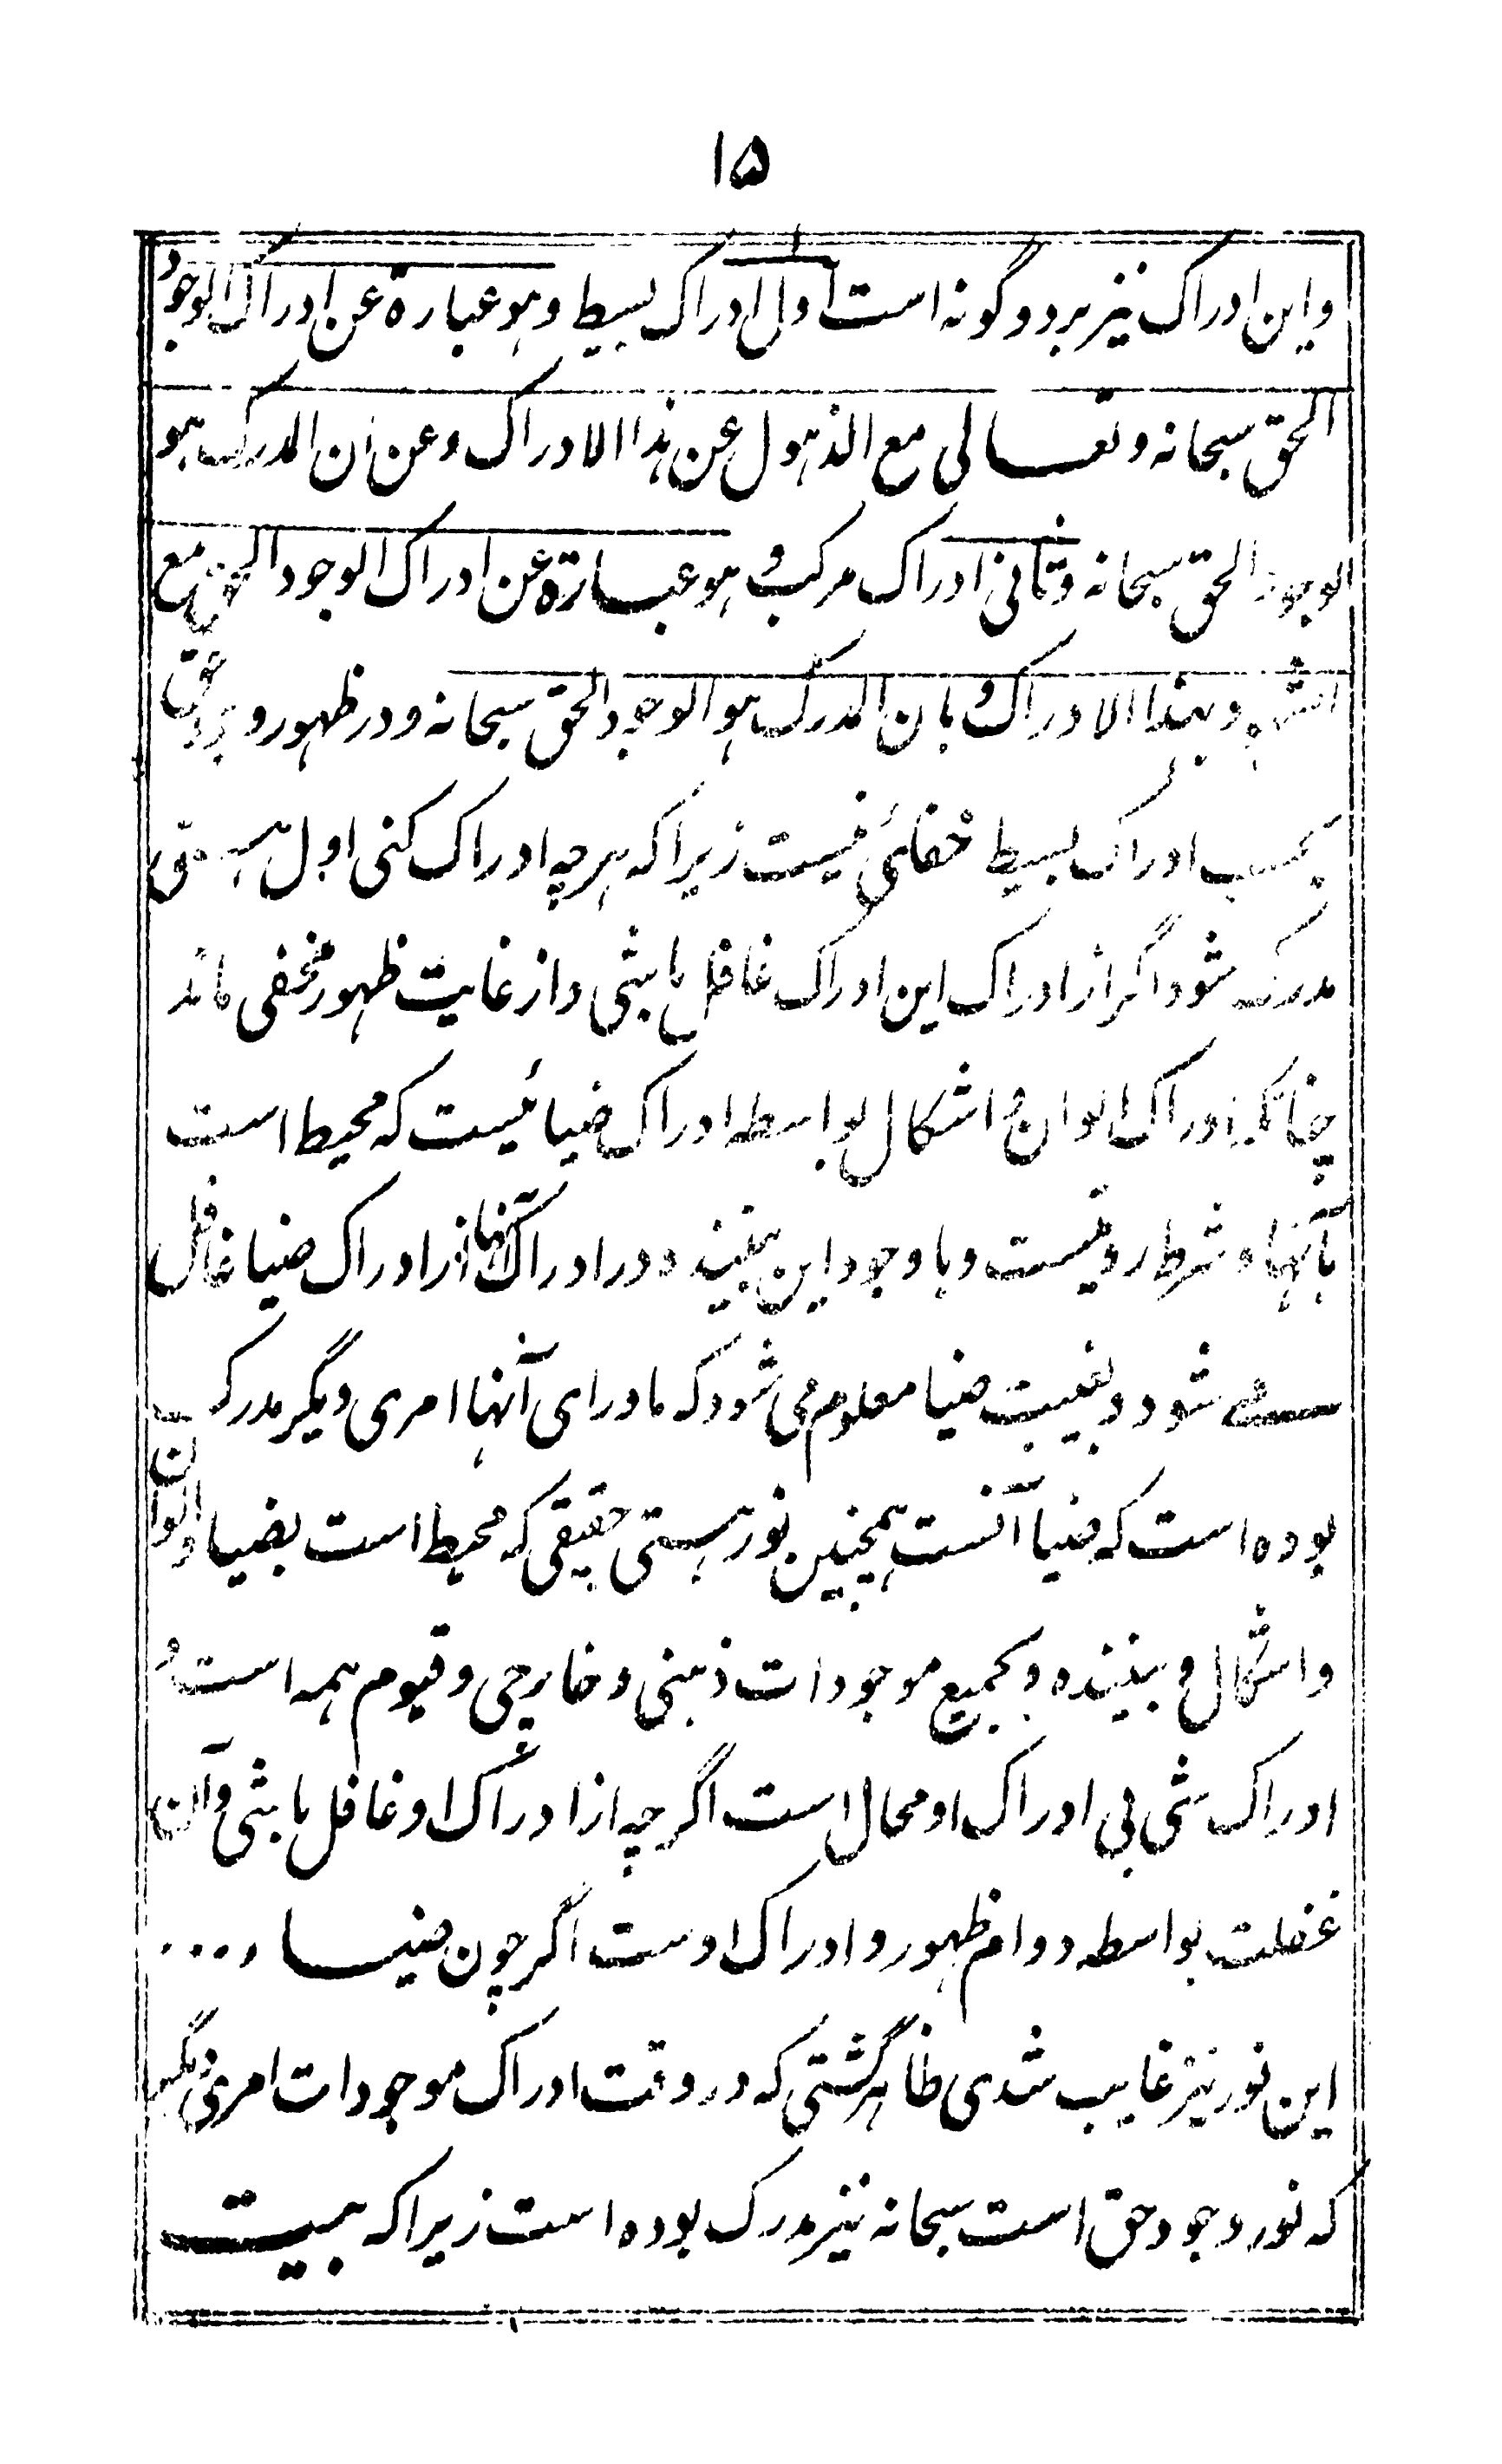 ۱۵
و این ادراک نیز بر دو گونه است اول ادراک بسیط و هو عبارة عن ادراک الوجود
الحق سبحانه و تعالی مع الذهول عن هذا الادراک و عن ان المدرک هو
الوجود الحق سبحانه و ثانی ادراک مرکب و هو عبارة عن ادراک الوجود الحق مع
الشعور بهذا الادراک و بان المدرک هو الوجود الحق سبحانه و در ظهور وجود حق
بحسب ادراک بسیط خفائی نیست زیرا که هر چه ادراک کنی اول هستی حق
مدرک شود اگر از ادراک این ادراک غافل باشی و از غایت ظهور مخفی ماند
چنانکه ادراک الوان و اشکال بواسطه ادراک ضیائیست که محیط است
بآنها و شرط رویتست و با وجود این بیننده در ادراک آنها از ادراک ضیا غافل
می شود و بغیبت ضیا معلوم می شود که ماورای آنها امری دیگر مدرک
بوده است که ضیا آنست همچنین نور هستی حقیقی که محیط است بضیا و الوان
و اشکال و بیننده و بجمیع موجودات ذهنی و خارجی و قیوم همه است و
ادراک شی بی ادراک او محال است اگرچه از ادراک او غافل باشی و آن
غفلت بواسطه دوام ظهور و ادراک اوست اگر چون ضیا ....
این نور نیز غایب شدی ظاهر گشتی که در وقت ادراک موجودات امری دیگر
که نور وجود حق است سبحانه نیز مدرک بوده است زیرا که بیت